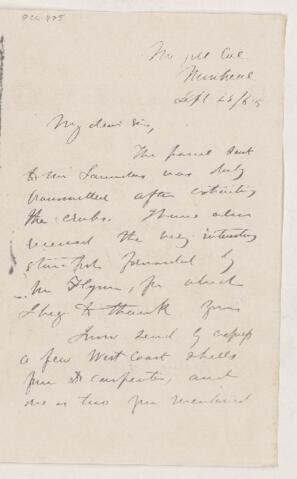 Montreal
Sept 28/65
My dear Sir,
The parcel sent
to Mr Saunders was duly
transmitted after extracting
the crabs. I have also
received the very interesting
star-fish forwarded by
Mr Flynn, for which
I beg to thank you
I now send by express
a few West Coast shells
from Dr Carpenter, and
one or two you mentioned